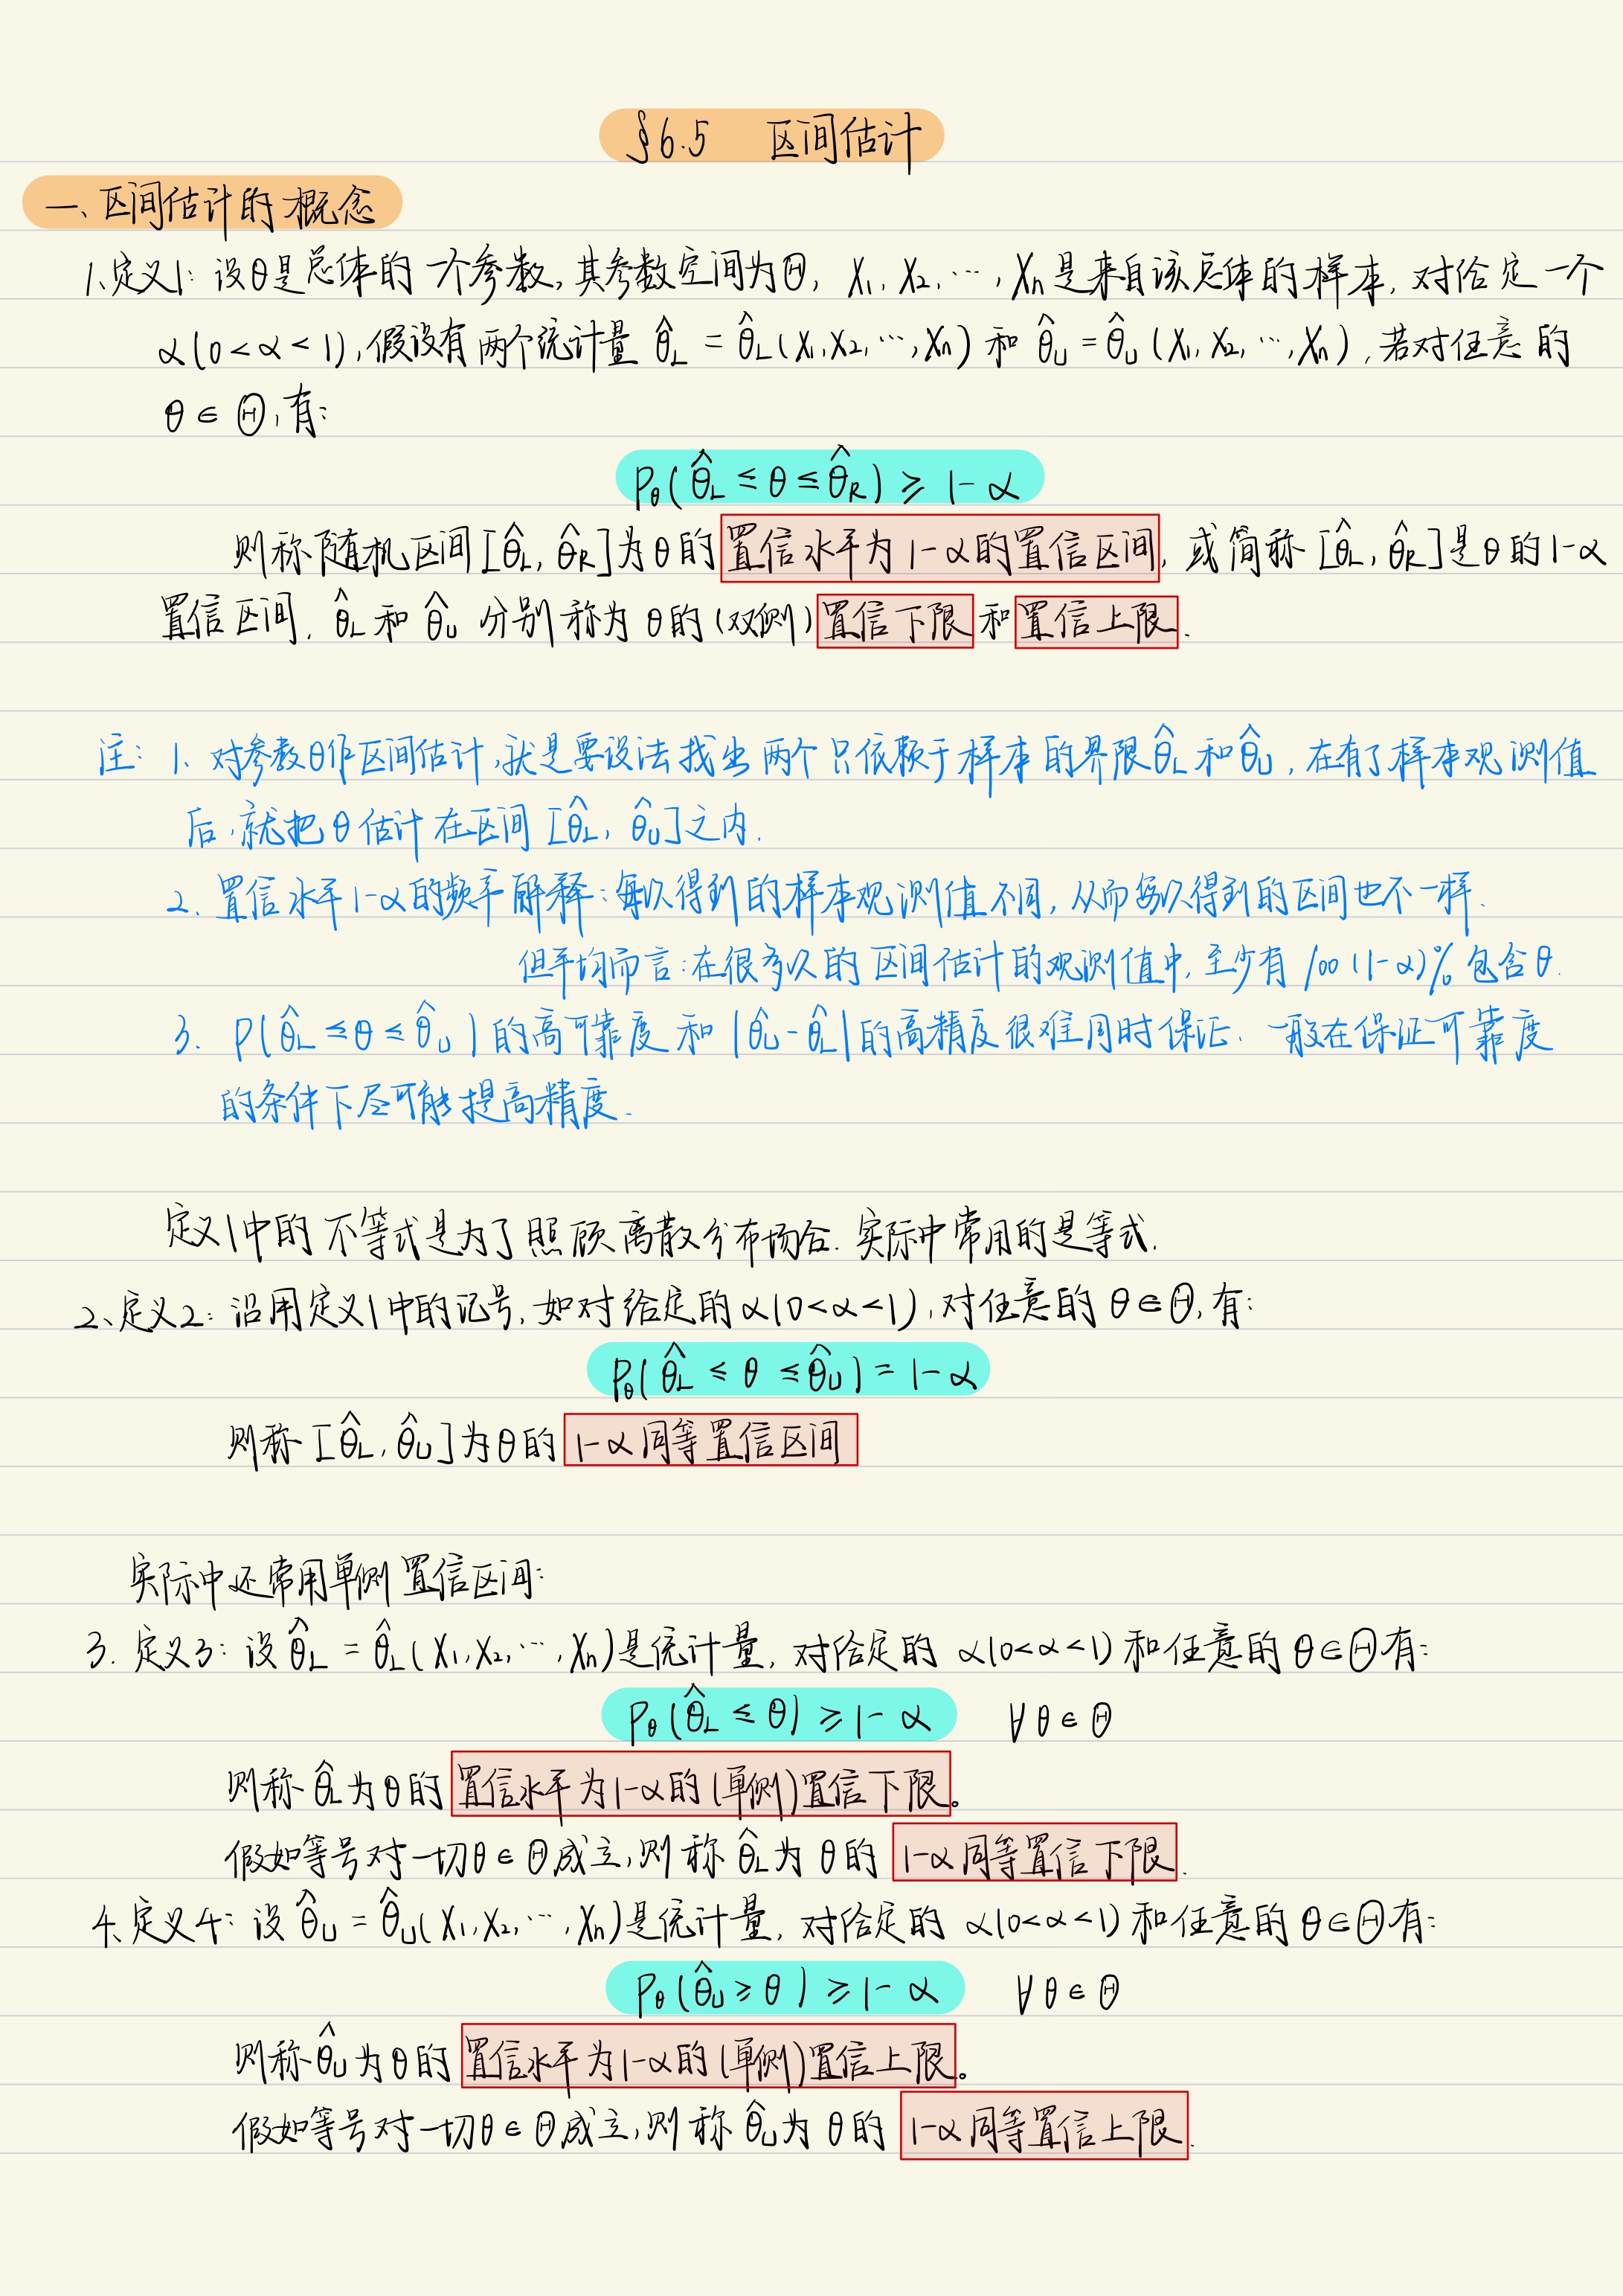 §6.5 区间估计
一、区间估计的概念
1、定义1: 设θ是总体的一个参数, 其参数空间为Θ, X₁, X₂, ⋯, Xₙ是来自该总体的样本, 对给定一个
α(0<α<1), 假设有两个统计量 θ̂_L = θ̂_L(X₁,X₂,⋯,Xₙ) 和 θ̂_U = θ̂_U(X₁,X₂,⋯,Xₙ), 若对任意的
θ∈Θ, 有:
P_θ(θ̂_L ≤ θ ≤ θ̂_R) ≥ 1-α
则称随机区间[θ̂_L, θ̂_R]为θ的置信水平为1-α的置信区间, 或简称[θ̂_L, θ̂_R]是θ的1-α
置信区间, θ̂_L 和 θ̂_U 分别称为θ的(双侧)置信下限和置信上限.
注: 1、对参数θ作区间估计,就是要设法找出两个只依赖于样本的界限θ̂_L和θ̂_U, 在有了样本观测值
后,就把θ估计在区间[θ̂_L, θ̂_U]之内.
2、置信水平1-α的频率解释:每次得到的样本观测值不同, 从而每次得到的区间也不一样.
但平均而言:在很多次的区间估计的观测值中, 至少有100(1-α)%包含θ.
3. P(θ̂_L ≤ θ ≤ θ̂_U)的高可靠度和|θ̂_U-θ̂_L|的高精度很难同时保证、一般在保证可靠度
的条件下尽可能提高精度.
定义1中的不等式是为了照顾离散分布场合. 实际中常用的是等式.
2、定义2: 沿用定义1中的记号, 如对给定的α(0<α<1), 对任意的θ∈Θ, 有:
P_θ(θ̂_L ≤ θ ≤ θ̂_U) = 1-α
则称[θ̂_L, θ̂_U]为θ的1-α同等置信区间
实际中还常用单侧置信区间:
3. 定义3: 设θ̂_L = θ̂_L(X₁,X₂,⋯,Xₙ)是统计量, 对给定的α(0<α<1)和任意的θ∈Θ有:
P_θ(θ̂_L ≤ θ) ≥ 1-α ∀θ∈Θ
则称θ̂_L为θ的置信水平为1-α的(单侧)置信下限。
假如等号对一切θ∈Θ成立,则称θ̂_L为θ的1-α同等置信下限.
4、定义4: 设θ̂_U = θ̂_U(X₁,X₂,⋯,Xₙ)是统计量, 对给定的α(0<α<1)和任意的θ∈Θ有:
P_θ(θ̂_U ≥ θ) ≥ 1-α ∀θ∈Θ
则称θ̂_U为θ的置信水平为1-α的(单侧)置信上限。
假如等号对一切θ∈Θ成立,则称θ̂_U为θ的1-α同等置信上限.